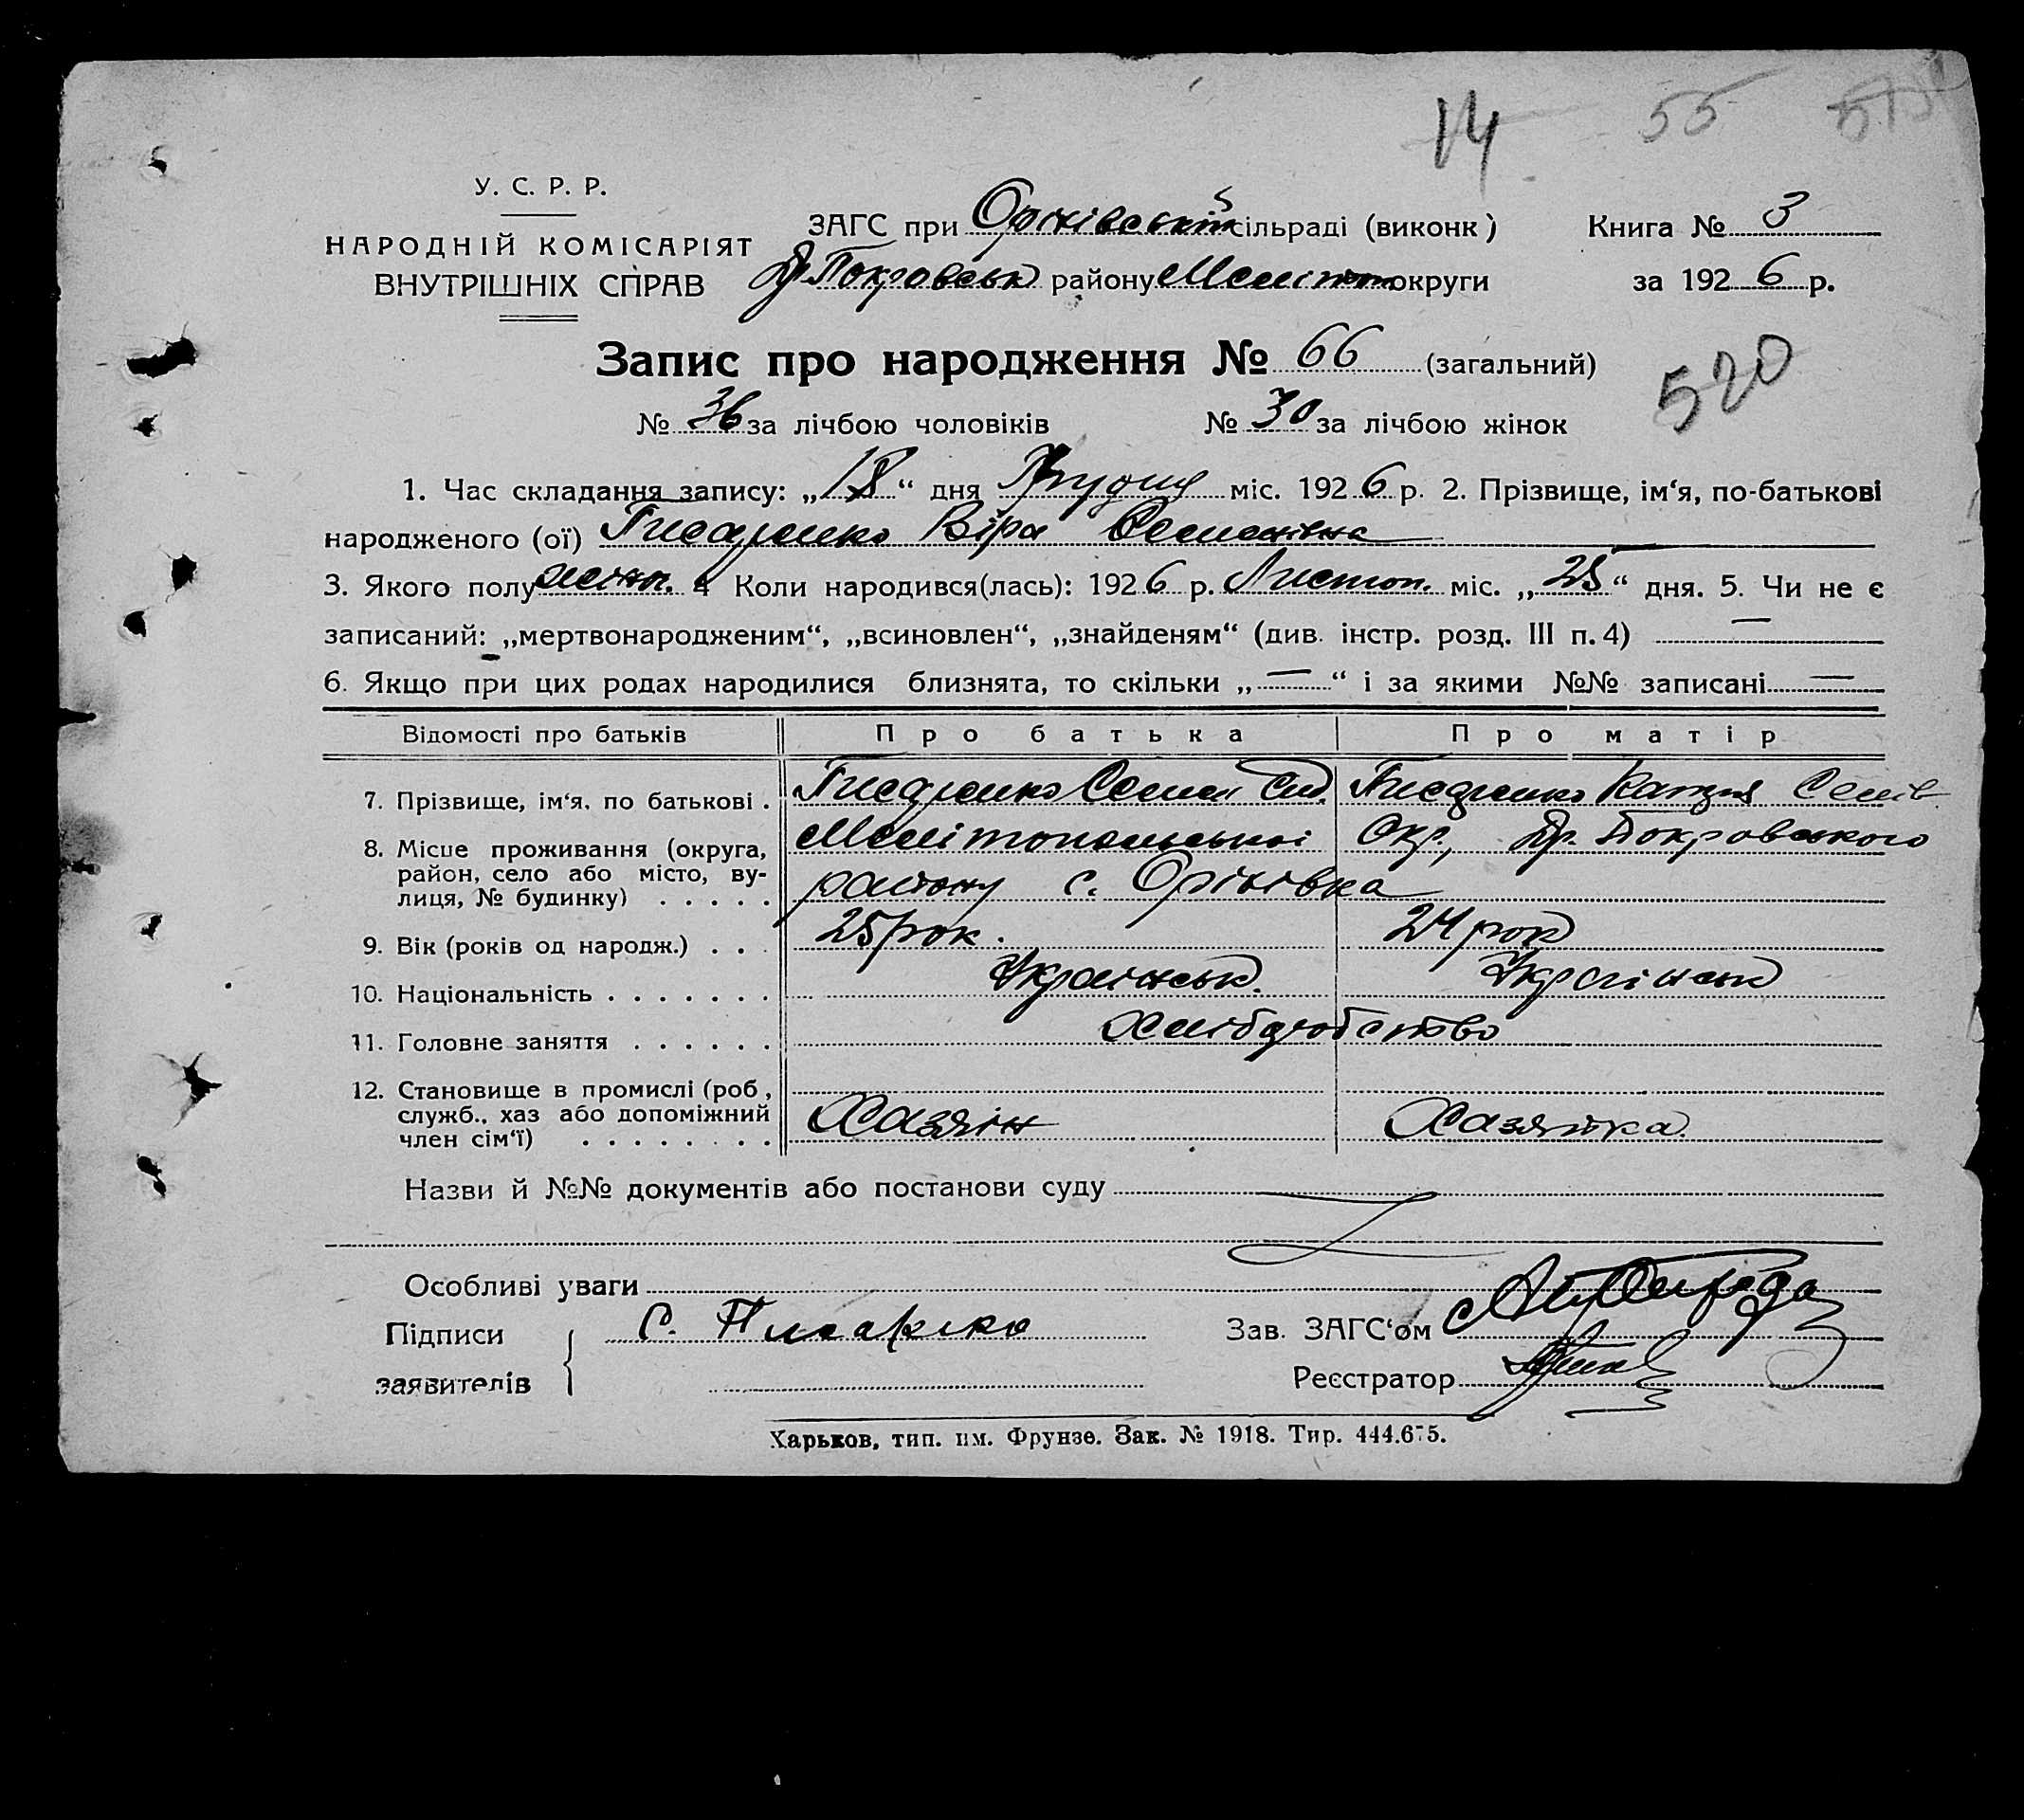 14 55
У. С. Р. Р.
НАРОДНІЙ КОМІСАРІЯТ
ВНУТРІШНІХ СПРАВ
ЗАГС при Оріхівській сільраді (виконк) Книга № 3
Др Покровськ району Меліт округи за 1926 р.
Запис про народження № 66 (загальний)
520
№ 36 за лічбою чоловіків № 30 за лічбою жінок
1. Час складання запису: „18“ дня Грудня міс. 1926 р. 2. Прізвище, ім‘я, по-батькові
народженого (ої) Писаренко Віра Семенівна
3. Якого полу жіноч. 4 Коли народився(лась): 1926 р. Листоп. міс. „25“ дня. 5. Чи не є
записаний: „мертвонародженим“, „всиновлен“, „знайденям“ (див. інстр. розд. III п. 4) —
6. Якщо при цих родах народилися близнята, то скільки „—“ і за якими №№ записані —
Відомості про батьків Про батька Про матір
7. Прізвище, ім‘я, по батькові . Писаренко Семен Сид. Писаренко Семів
8. Місце проживання (округа, Мелітопольської Окр., Др. Покровського
район, село або місто, ву- району с. Оріхівка
лиця, № будинку) . . . . .
9. Вік (років од народж.) . . . 25 рок. 24 рок
10. Національність . . . . . . . Українськ. Українськ
11. Головне заняття . . . . . . Хліборобство
12. Становище в промислі (роб ,
служб., хаз або допоміжний Хазяїн Хазяйка.
член сім‘ї) . . . . . . . .
Назви й №№ документів або постанови суду
Особливі уваги
Підписи С. Писаренко Зав. ЗАГС‘ом
заявителів Реєстратор
Харьков, тип. им. Фрунзе. Зак. № 1918. Тир. 444.675.